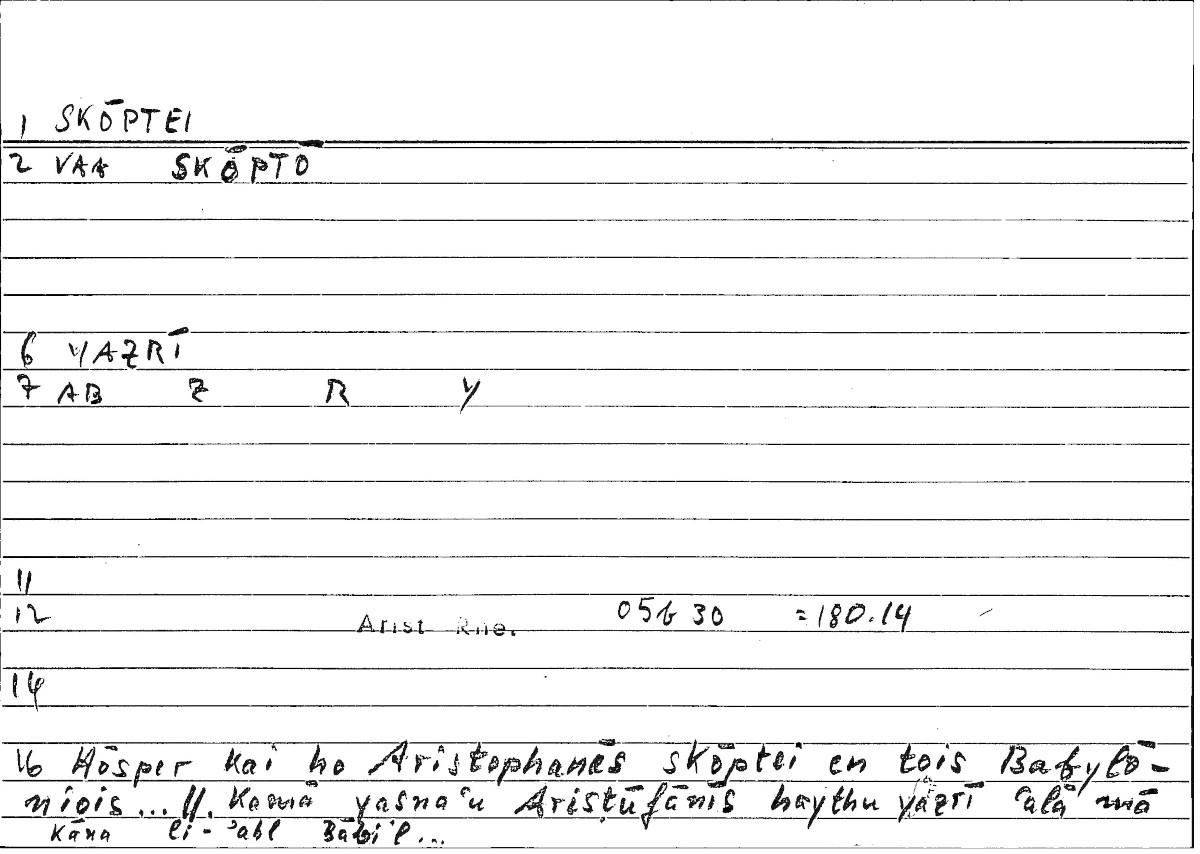 1 SKŌPTEI
2 VAA SKŌPTŌ
6 YAZRĪ
7 AB Z R Y
11
12 Arist Rhe. 05b 30 = 180.14
14
16 Hōsper kai ho Aristophanēs skōptei en tois Babylō-
niois... //. Kamā yaṣnaʿu Arisṭūfānīs haythu yazrī ʿalā mā
kāna li-ʾahl Bābil...